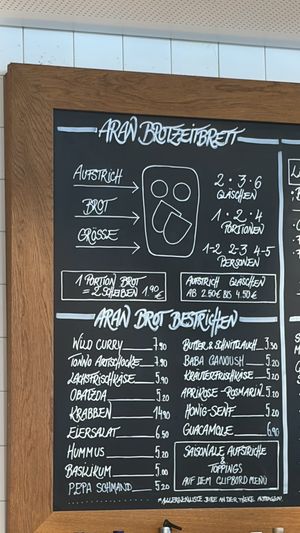 ARAN BROTZEITBRETT
AUFSTRICH
BROT
GRÖSSE
2 · 3 · 6
GLÄSCHEN
1 · 2 · 4
PORTIONEN
1-2 2-3 4-5
PERSONEN
1 PORTION BROT
= 2 SCHEIBEN 1,90 €
AUFSTRICH GLÄSCHEN
AB 2.50€ BIS 4.50€
ARAN BROT BESTRICHEN
WILD CURRY 7.90
TONNO ARTISCHOCKE 7.90
LACHSFRISCHKÄSE 5.90
OBATZDA 5.20
KRABBEN 14.90
EIERSALAT 6.50
HUMMUS 5.20
BASILIKUM 5.00
PEPA SCHMAND 5.20
BUTTER & SCHNITTLAUCH 3.50
BABA GANOUSH 5.20
KRÄUTERFRISCHKÄSE 5.20
APRIKOSE - ROSMARIN 5.20
HONIG-SENF 5.20
GUACAMOLE 6.90
SAISONALE AUFSTRICHE
&
TOPPINGS
AUF DEM CLIPBORD MENÜ
* ALLERGENLISTE BITTE AN DER THEKE